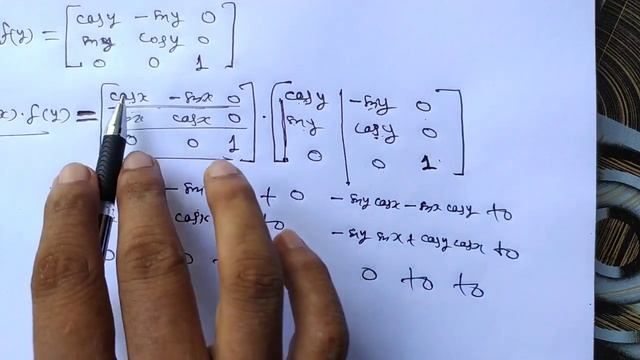 f(y) = [cosy -siny 0
siny cosy 0
0 0 1]
x) . f(y) = [cosx -sinx 0] . [cosy -siny 0]
inx cosx 0 siny cosy 0
0 0 1 0 0 1
- sin + 0 - siny cosx - sinx cosy + 0
cosx + 0 - siny sinx + cosy cosx + 0
0 0 + 0 + 0 + 0